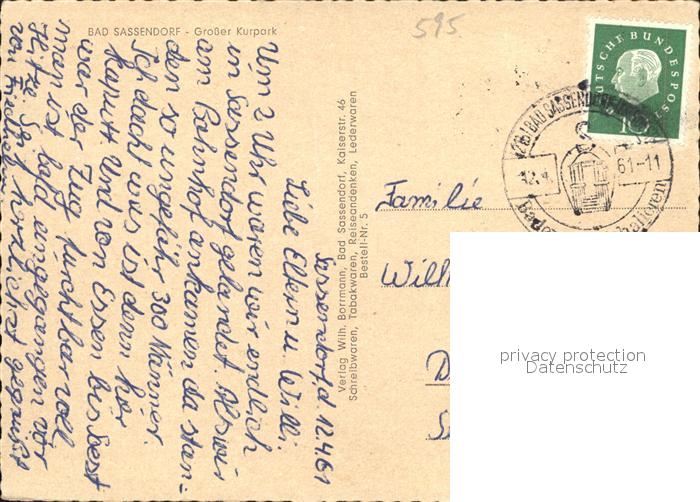 BAD SASSENDORF - Großer Kurpark
595
Sassendorf, d. 12.4.61
Liebe Eltern u. Willi.
Um 2 Uhr waren wir endlich
in Sassendorf gelandet. Als wir
am Bahnhof ankamen da stan-
den so ungefähr 300 Männer.
Ich dacht was ist denn hier
kaputt. Und von Essen bis Soest
war der Zug furchtbar voll,
man ist bald eingegangen vor
Hitze. Seit herzlichst gegrüßt
von
Verlag Wilh. Borrmann, Bad Sassendorf, Kaiserstr. 46
Schreibwaren, Tabakwaren, Reiseandenken, Lederwaren
Bestell-Nr. 5
DEUTSCHE BUNDESPOST
10
BAD SASSENDORF
12.4.
61-11
Familie
Wilh
privacy protection
Datenschutz